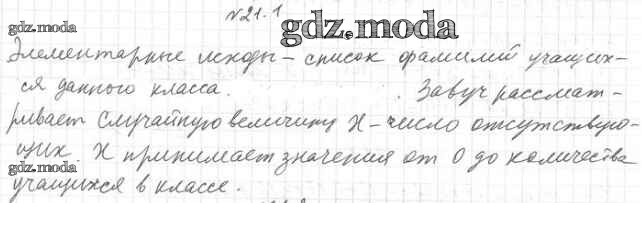 №21.1
gdz.moda
gdz.moda
Элементарные исходы – список фамилий учащих-
ся данного класса. Завуч рассмат-
ривает случайную величину X – число отсутствую-
щих. X принимает значения от 0 до количества
gdz.moda
учащихся в классе.